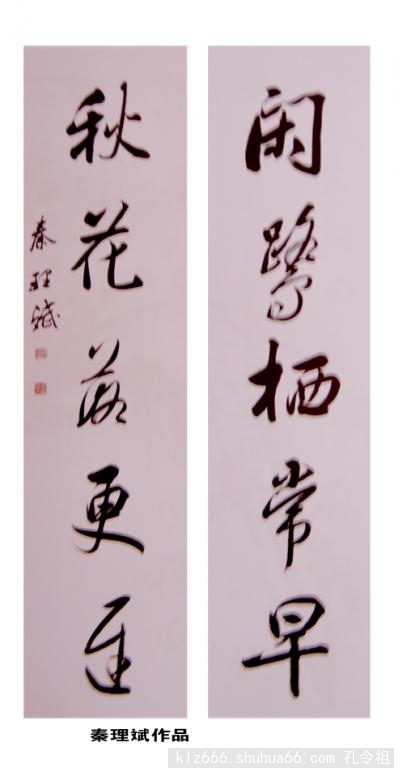 闲鹭栖常早
秋花落更迟
秦理斌
秦理斌作品
klz666.shuhua66.com 孔令祖